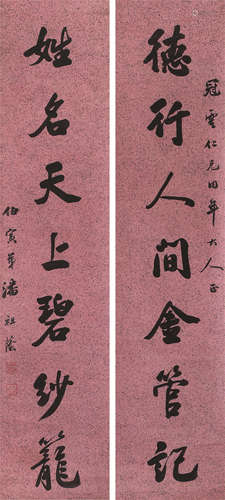 冠雲仁兄同年大人正
德行人間金管記
姓名天上碧紗籠
伯寅弟潘祖蔭